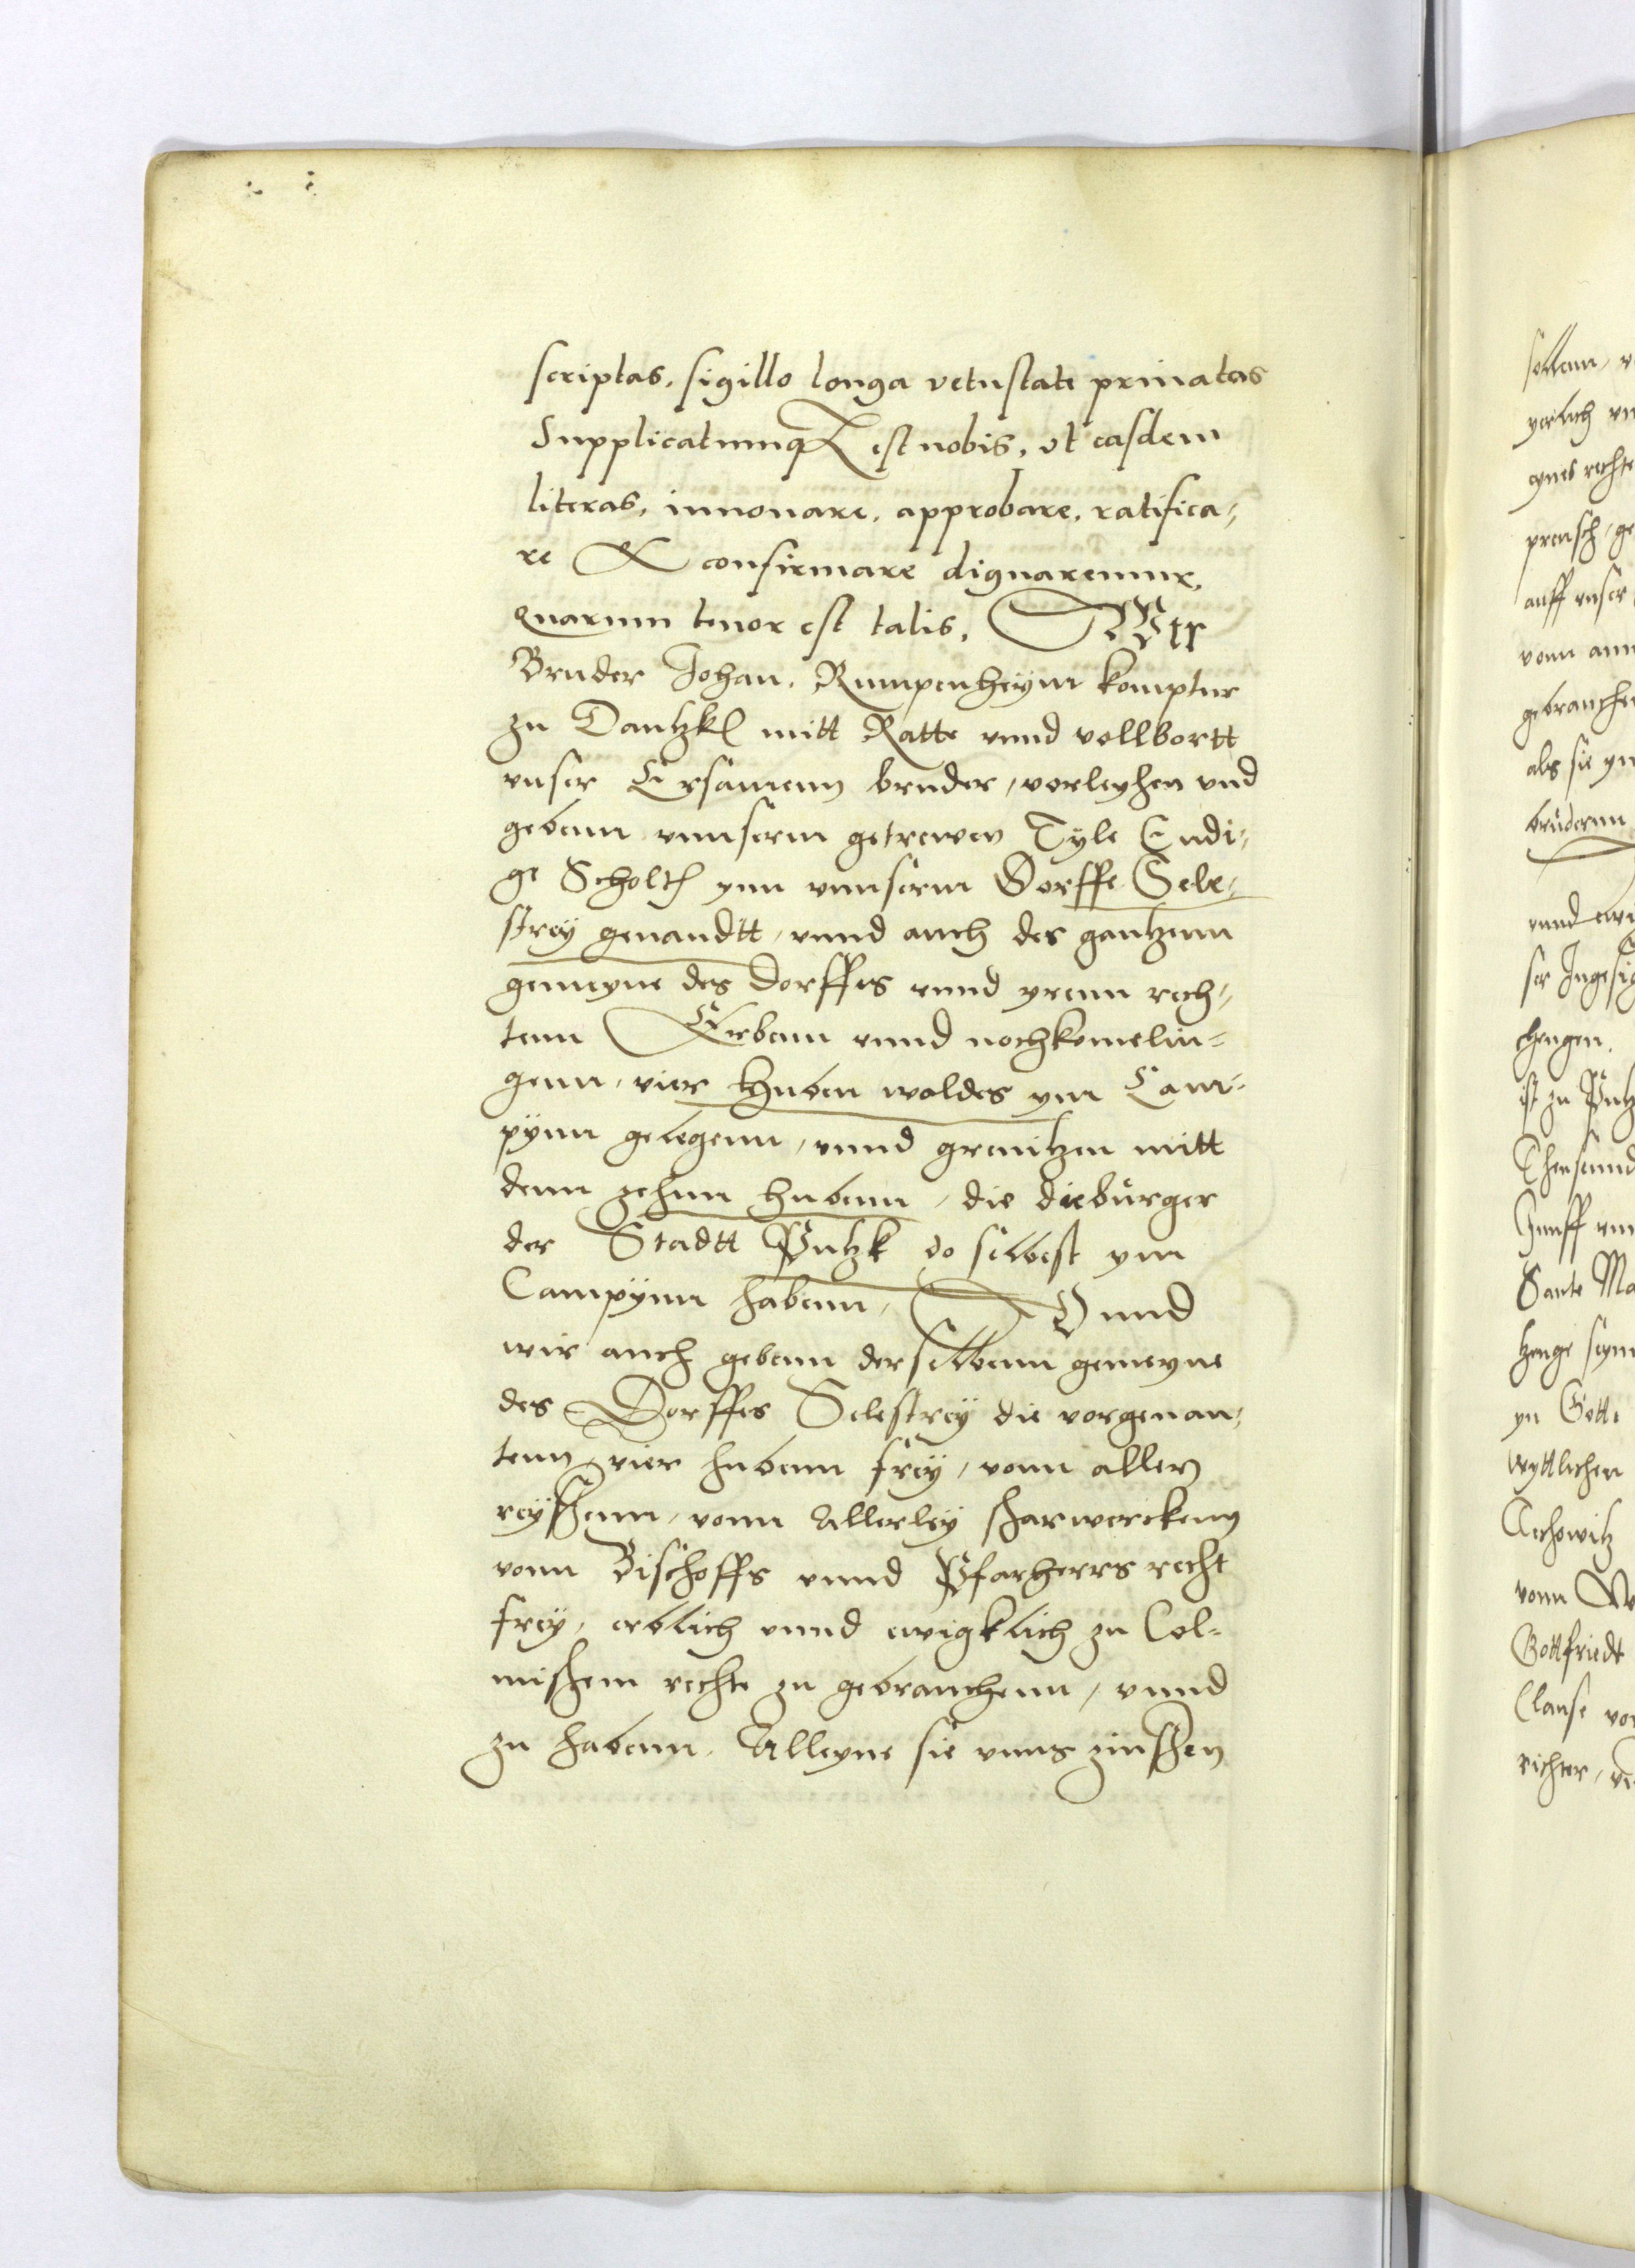 scriptas, sigillo longa vetustate priuatas
Supplicatumq est nobis, vt easdem
literas, innouare, approbare, ratifica-
re & confirmare dignaremur,
quarum tenor est talis, Wir
Bruder Johan, Rumpenheym komptur
zu Dantzk mitt Ratte vnnd vollbortt
vnser Ersamenn bruder, vorleyhen vnd
gebenn vnnserm getrewen Tyle Endi-
ge Scholtz ynn vnnserm Dorffe Sele-
strey genandtt, vnnd auch der gantzenn
gemeyne des dorffes vnnd yrenn rech-
tenn Erbenn vnnd nochkomelin-
genn, vier Huben waldes ym Cam-
pynn gelegenn, vnnd grenitzen mitt
denn zehnn Hubenn, die die bürger
der Stadtt Putzk do selbest ym
Campynn habenn, Vnnd
wir auch gebenn derselbenn gemeyne
des Dorffes Selestrey die vorgenan-
tenn vier hubenn frey, vonn allen
reyßenn, vonn Allerley sharwerckenn
vonn Bischoffs vnnd Pfarherrs recht
frey, erblich vnnd ewigklich zu Col-
mishem rechte zu gebrauchenn, vnnd
zu habenn, Alleyne sie vnns zinßen
sollenn, v
yerlich vn
eynes rechte
preusch, ge
auff vnser
vonn ann
gebrauchen
als sie yn
brüdernn
vnnd ewi
ser Ingesig
hengen,
ist zu Putz
Thausennd
Funff vnn
Sante Ma
tzeuge seyn
yn Gott
wyttlichen
vonn
Gottfriedt
Clause vo
richter, vn